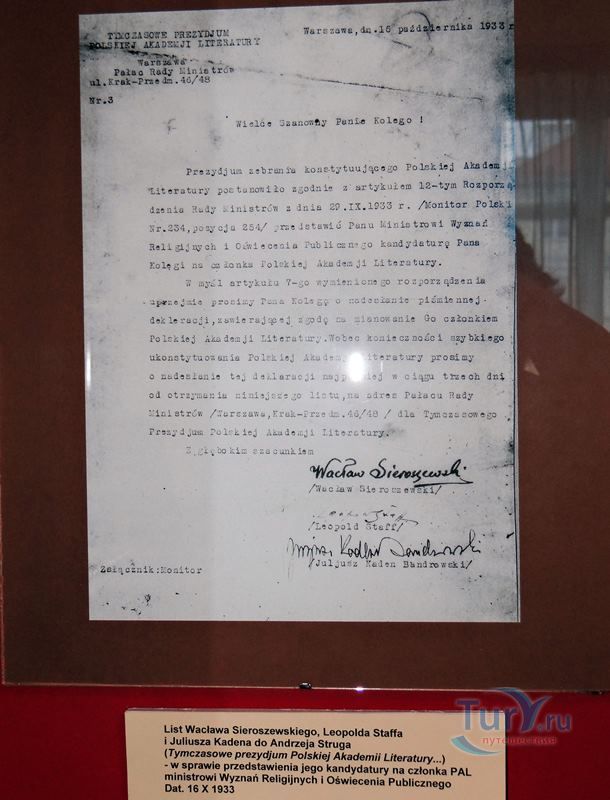 TYMCZASOWE PREZYDJUM
POLSKIEJ AKADEMJI LITERATURY
Warszawa
Pałac Rady Ministrów
ul.Krak-Przedm.46/48
Nr.3
Warszawa, dn.16 października 1933 r
Wielce Szanowny Panie Kolego !
Prezydjum zebrania konstytuującego Polskiej Akademji
Literatury postanowiło zgodnie z artykułem 12-tym Rozporzą
dzenia Rady Ministrów z dnia 29.IX.1933 r. /Monitor Polski
Nr.234,pozycja 254/ przedstawić Panu Ministrowi Wyznań
Religijnych i Oświecenia Publicznego kandydaturę Pana
Kolęgi na członka Polskiej Akademji Literatury.
W myśl artykułu V-go wymienionego rozporządzenia
uprzejmie prosimy Pana Kolegę o nadesłanie piśmiennej
deklaracji,zawierającej zgodę na mianowanie Go członkiem
Polskiej Akademji Literatury.Wobec konieczności szybkiego
ukonstytuowania Polskiej Akademji Literatury prosimy
o nadesłanie tej deklaracji najpóźniej w ciągu trzech dni
od otrzymania niniejszego listu,na adres Pałacu Rady
Ministrów /Warszawa,Krak-Przedm.46/48 / dla Tymczasowego
Prezydjum Polskiej Akademji Literatury.
Z głębokim szacunkiem
Wacław Sieroszewski
/Wacław Sieroszewski/
/Leopold Staff/
Juljusz Kaden Bandrowski
/Juljusz Kaden Bandrowski/
Załącznik:Monitor
TurY.ru
путешествия
List Wacława Sieroszewskiego, Leopolda Staffa
i Juliusza Kadena do Andrzeja Struga
(Tymczasowe prezydjum Polskiej Akademii Literatury...)
- w sprawie przedstawienia jego kandydatury na członka PAL
ministrowi Wyznań Religijnych i Oświecenia Publicznego
Dat. 16 X 1933